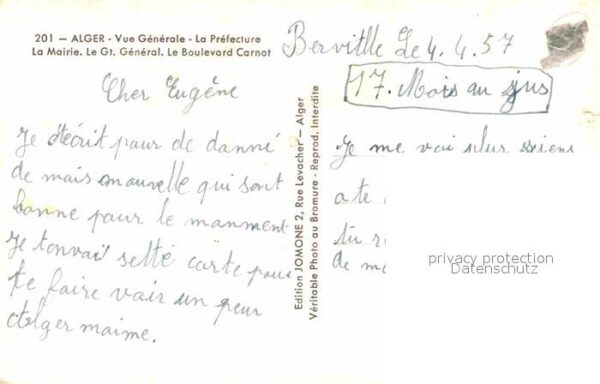 201 — ALGER - Vue Générale - La Préfecture
La Mairie. Le Gt. Général. Le Boulevard Carnot
Berville Le 4.4.57
17. Mois au jus
Cher Eugène
Je técrit pour de danné
de mais nouvelle qui sont
bonne pour le manment
Je tonvai setté carte pour
te faire vair un peur
Alger maime.
Edition JOMONE 2, Rue Levacher — Alger
Véritable Photo au Bromure - Reprod. Interdite
Je me vai plur riens
a te
tu r
de m
privacy protection
Datenschutz